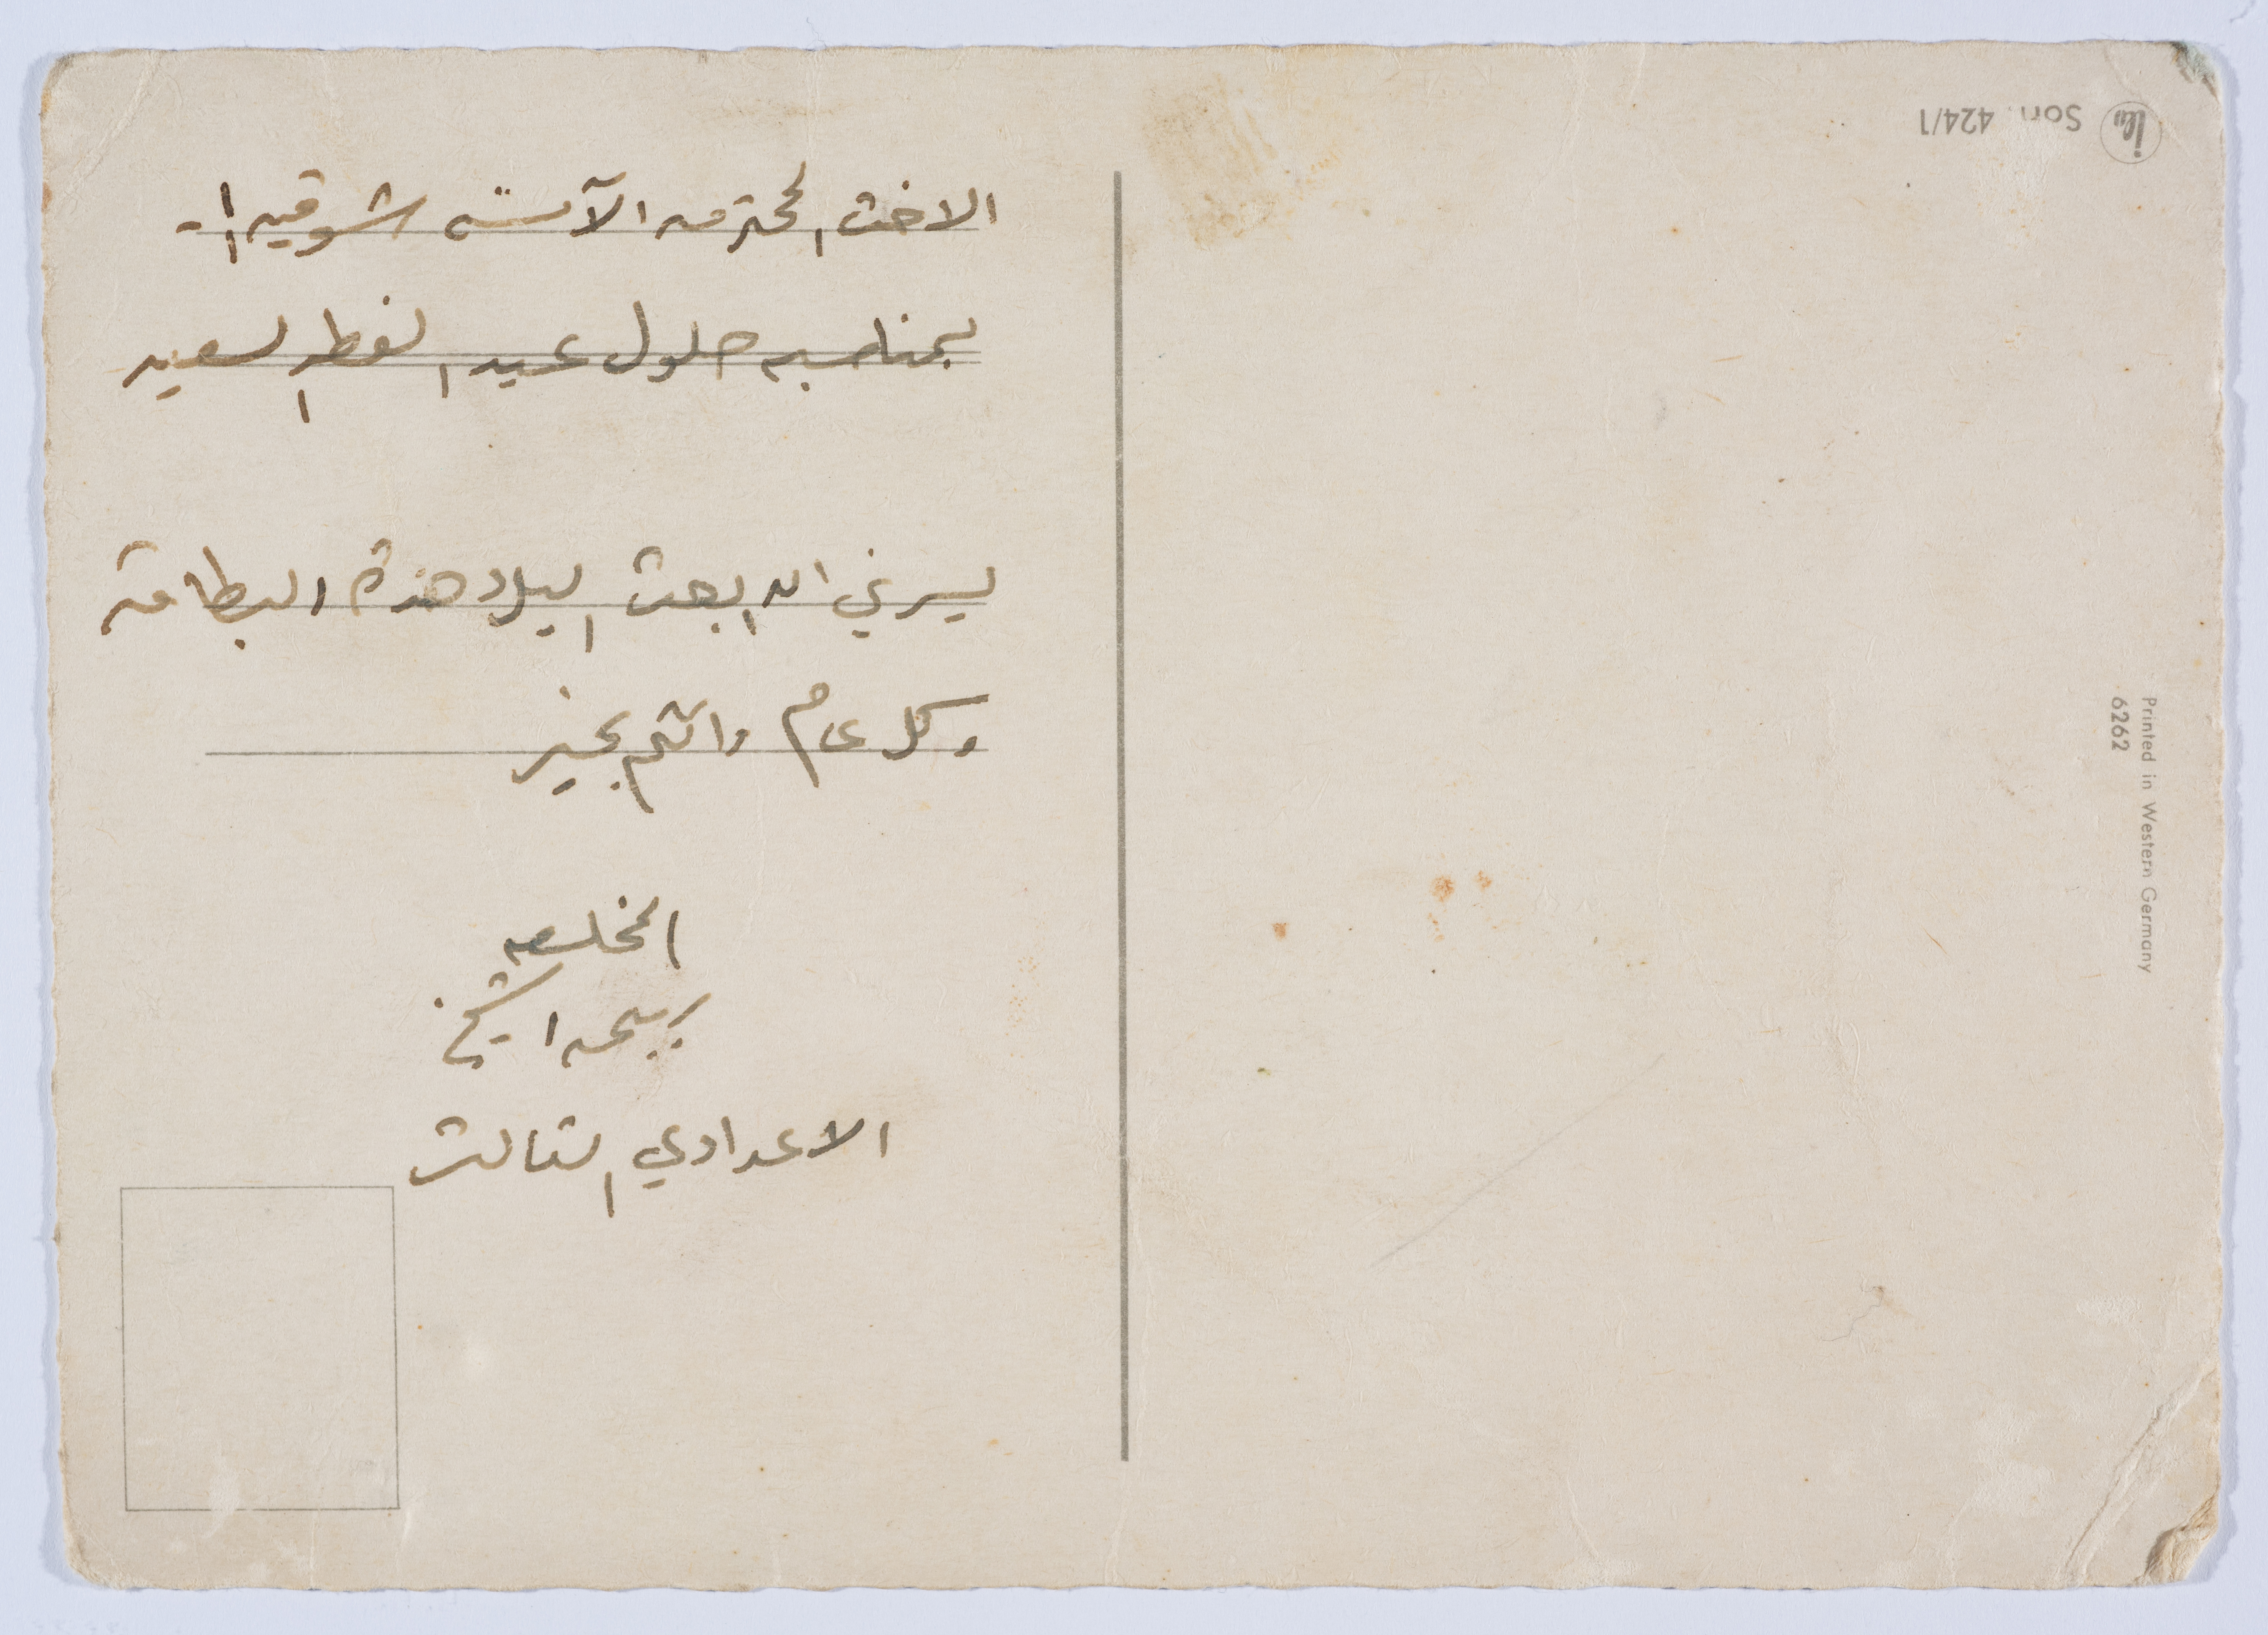 الاخت المحترمه الآنسه شوقيه ا.
بمناسبه حلول عيد الفطر السعيد
يسرني ان ابعث اليك هذة البطاقه
وكل عام وانتم بخير
المخلصه
ربيحه اشيخ
الاعدادي الثالث
Son 424/1
Printed in Western Germany
6262